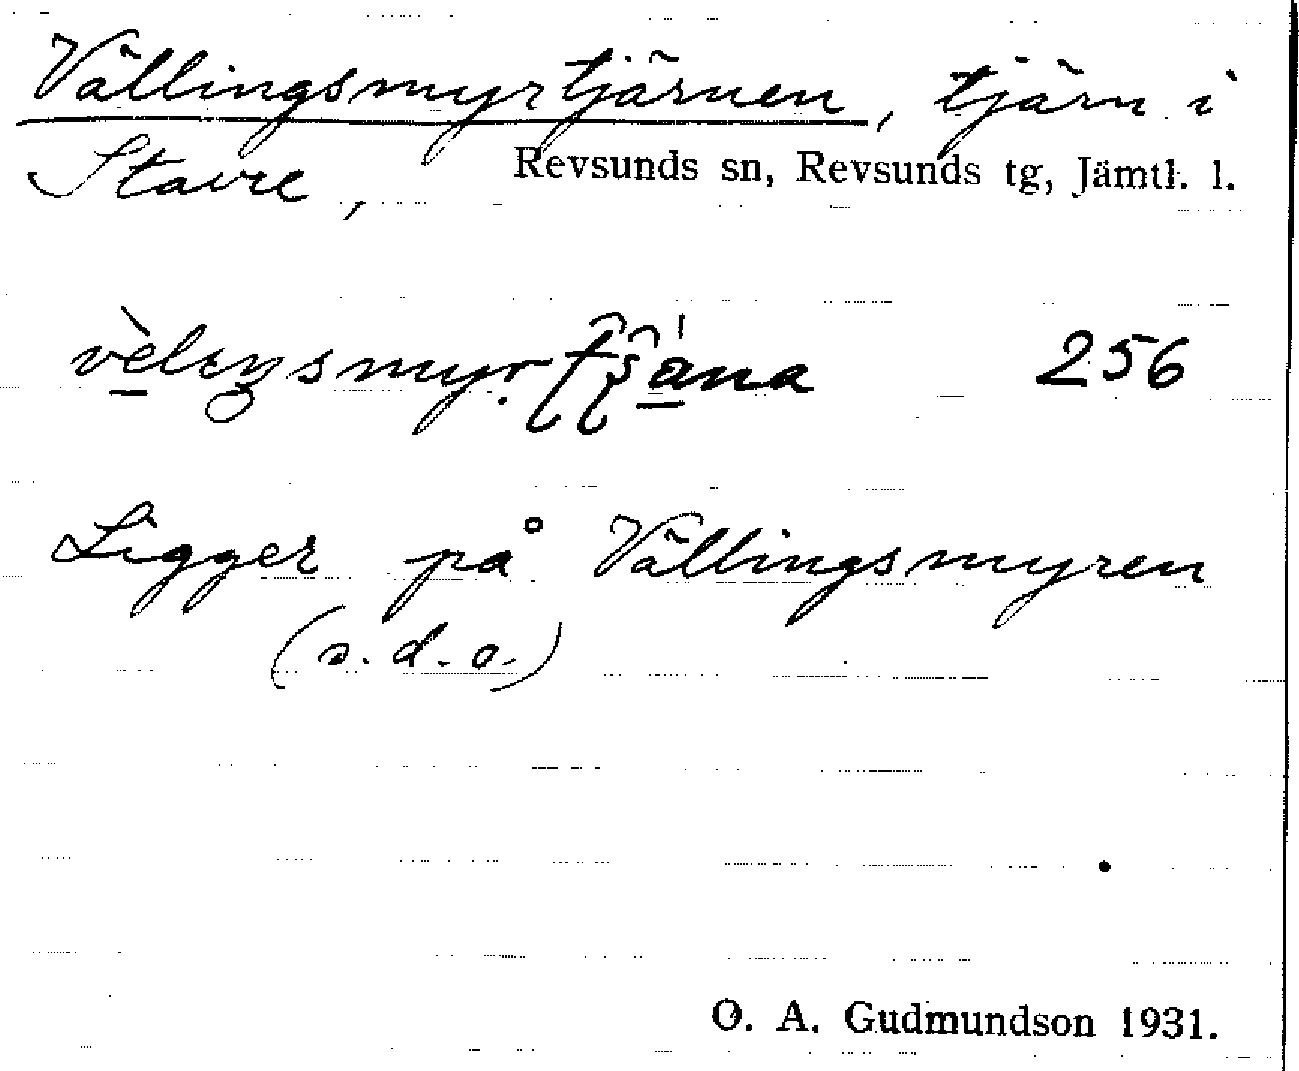 Vällingsmyrtjärnen, tjärn i
Stavre, Revsunds sn, Revsunds tg, Jämtl. l.
256
Ligger på Vällingsmyren
(s. d. o.)
O. A. Gudmundson 1931.